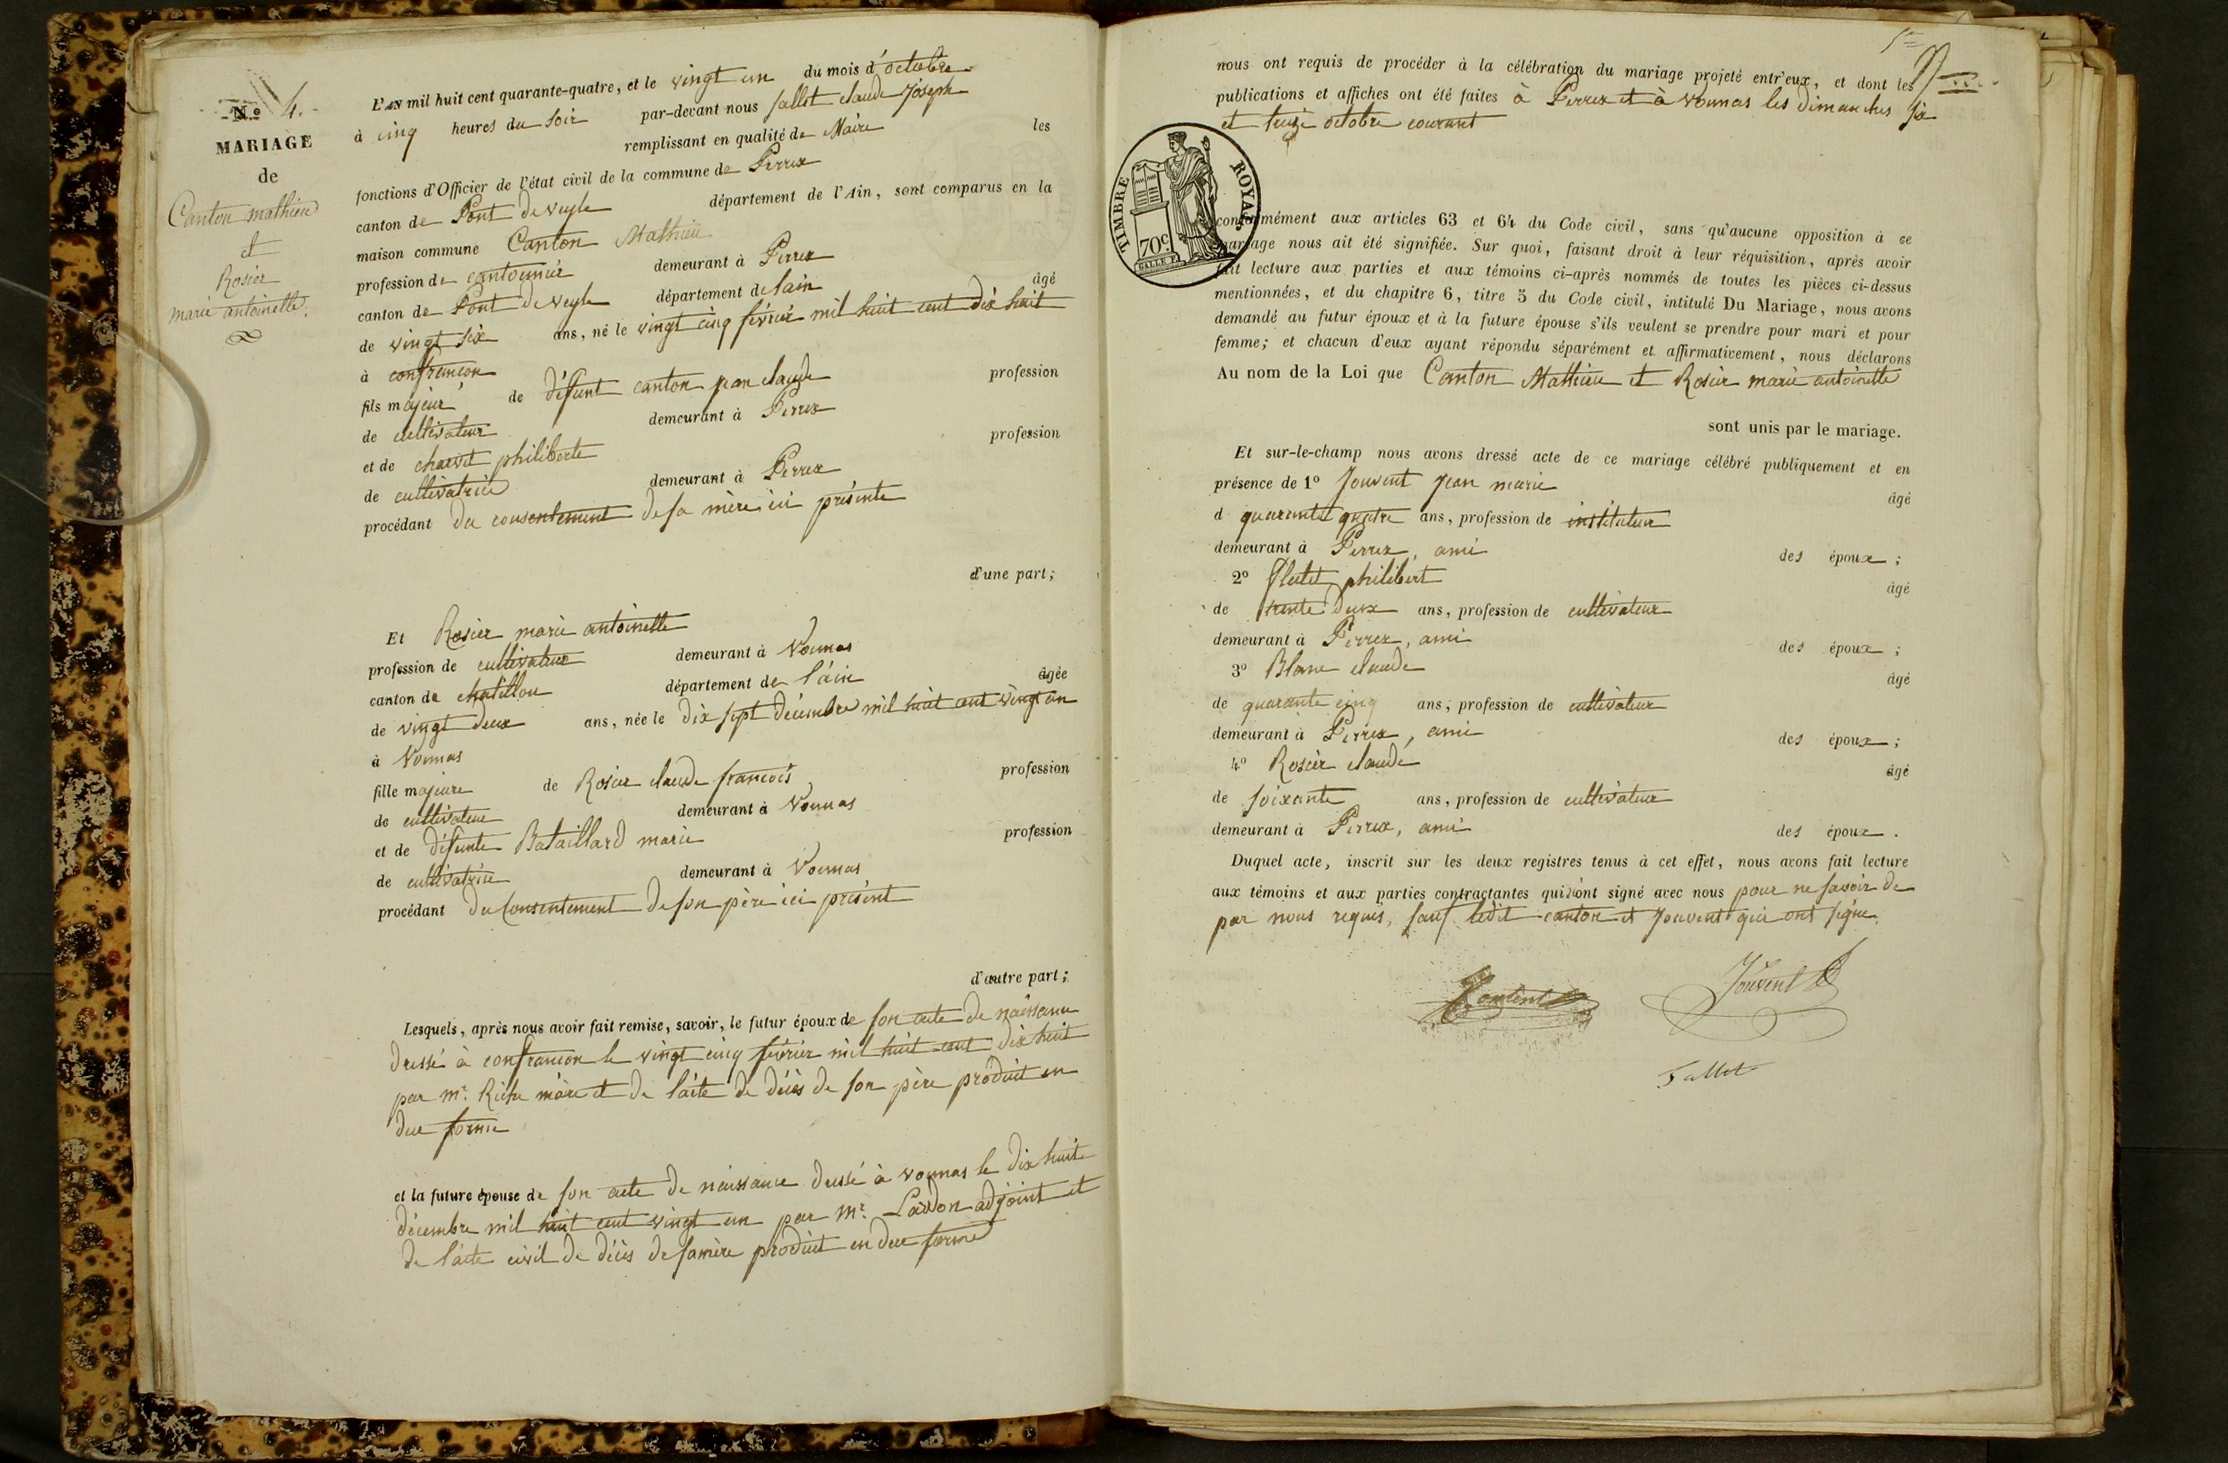 N.º 4.
MARIAGE
de
Canton mathieu
et
Rosier
marie antoinette.
L'AN mil huit cent quarante-quatre, et le vingt un du mois d'octobre
à cinq heures du soir par-devant nous fallet claude Joseph
remplissant en qualité de Maire les
fonctions d'Officier de l'état civil de la commune de Perrex
canton de Pont de veyle département de l'Ain, sont comparus en la
maison commune Canton Mathieu
profession de cantonnier demeurant à Perrex
canton de Pont de veyle département de lain âgé
de vingt six ans, né le vingt cinq février mil huit cent dix huit
à confrancon
fils majeur de défunt canton jean claude profession
de cultivateur demeurant à Perrex
et de charvet philiberte profession
de cultivatrice demeurant à Perrex
procédant du consentement de sa mère ici présente
d'une part;
Et Rosier marie antoinette
profession de cultivateur demeurant à Vonnas
canton de chatillon département de l'ain âgée
de vingt deux ans, née le dix sept décembre mil huit cent vingt un
à Vonnas
fille majeure de Rosier claude françois profession
de cultivateur demeurant à Vonnas
et de défunte Bataillard marie profession
de cultivatrice demeurant à Vonnas
procédant du Consentement de son père ici présent
d'autre part;
Lesquels, après nous avoir fait remise, savoir, le futur époux de son acte de naissance
dressé à confrancon le vingt cinq février mil huit cent dix huit
par mr. Riche maire et de l'acte de décès de son père produit en
due forme
et la future épouse de son acte de naissance dressé à vonnas le dix huit
décembre mil huit cent vingt un par mr. Lardon adjoint et
de l'acte civil de décès de sa mère produit en due forme
nous ont requis de procéder à la célébration du mariage projeté entr'eux, et dont les
publications et affiches ont été faites à Perrex et à vonnas les dimanches six
et treize octobre courant
TIMBRE ROYAL
70c.
conformément aux articles 63 et 64 du Code civil, sans qu'aucune opposition à ce
mariage nous ait été signifiée. Sur quoi, faisant droit à leur réquisition, après avoir
fait lecture aux parties et aux témoins ci-après nommés de toutes les pièces ci-dessus
mentionnées, et du chapitre 6, titre 5 du Code civil, intitulé Du Mariage, nous avons
demandé au futur époux et à la future épouse s'ils veulent se prendre pour mari et pour
femme; et chacun d'eux ayant répondu séparément et affirmativement, nous déclarons
Au nom de la Loi que Canton Mathieu et Rosier marie antoinette
sont unis par le mariage.
Et sur-le-champ nous avons dressé acte de ce mariage célébré publiquement et en
présence de 1º Jouvent jean marie âgé
d quarante quatre ans, profession de instituteur
demeurant à Perrex, ami des époux;
2º philibert âgé
de trente deux ans, profession de cultivateur
demeurant à Perrex, ami des époux;
3º Blanc claude âgé
de quarante cinq ans, profession de cultivateur
demeurant à Perrex, ami des époux;
4º Rosier claude âgé
de soixante ans, profession de cultivateur
demeurant à Perrex, ami des époux.
Duquel acte, inscrit sur les deux registres tenus à cet effet, nous avons fait lecture
aux témoins et aux parties contractantes qui n'ont signé avec nous pour ne savoir de
par nous requis, sauf ledit canton et Jouvent qui ont signé.
Jouvent
Fallet